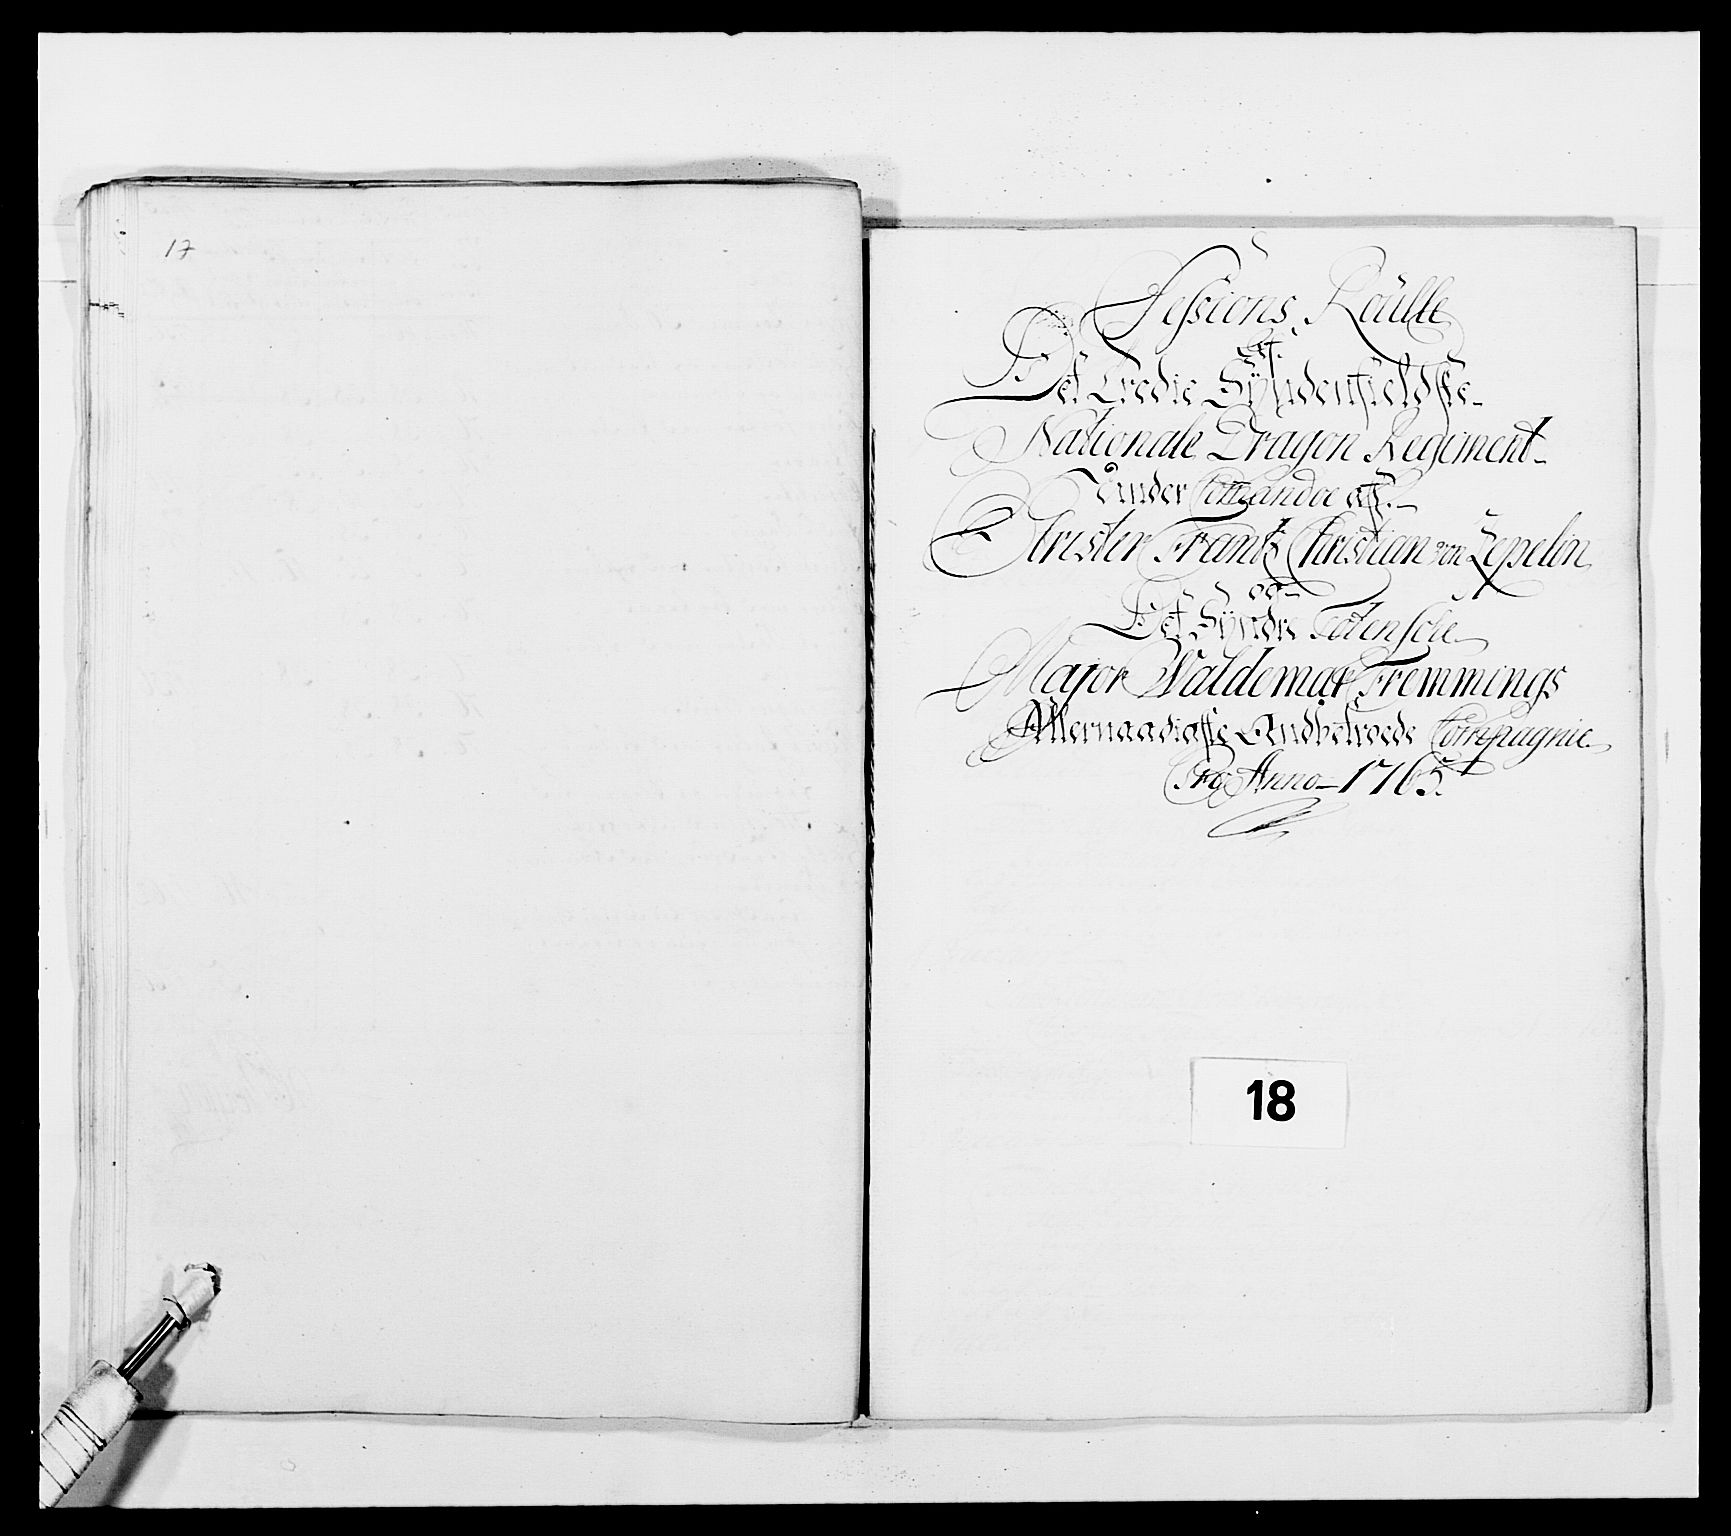 17
Sessions Roulle
af
Det Tredie Syndenfieldske
Nationale Dragon Regiment
Under Commandoe aff
Obrister Frantz Christian von Zepelin
og
Det Syndre Totensche
Major Waldemar Fremmings
Allernaadigste Andbetroede Compagnie
Pro Anno 1765.
18